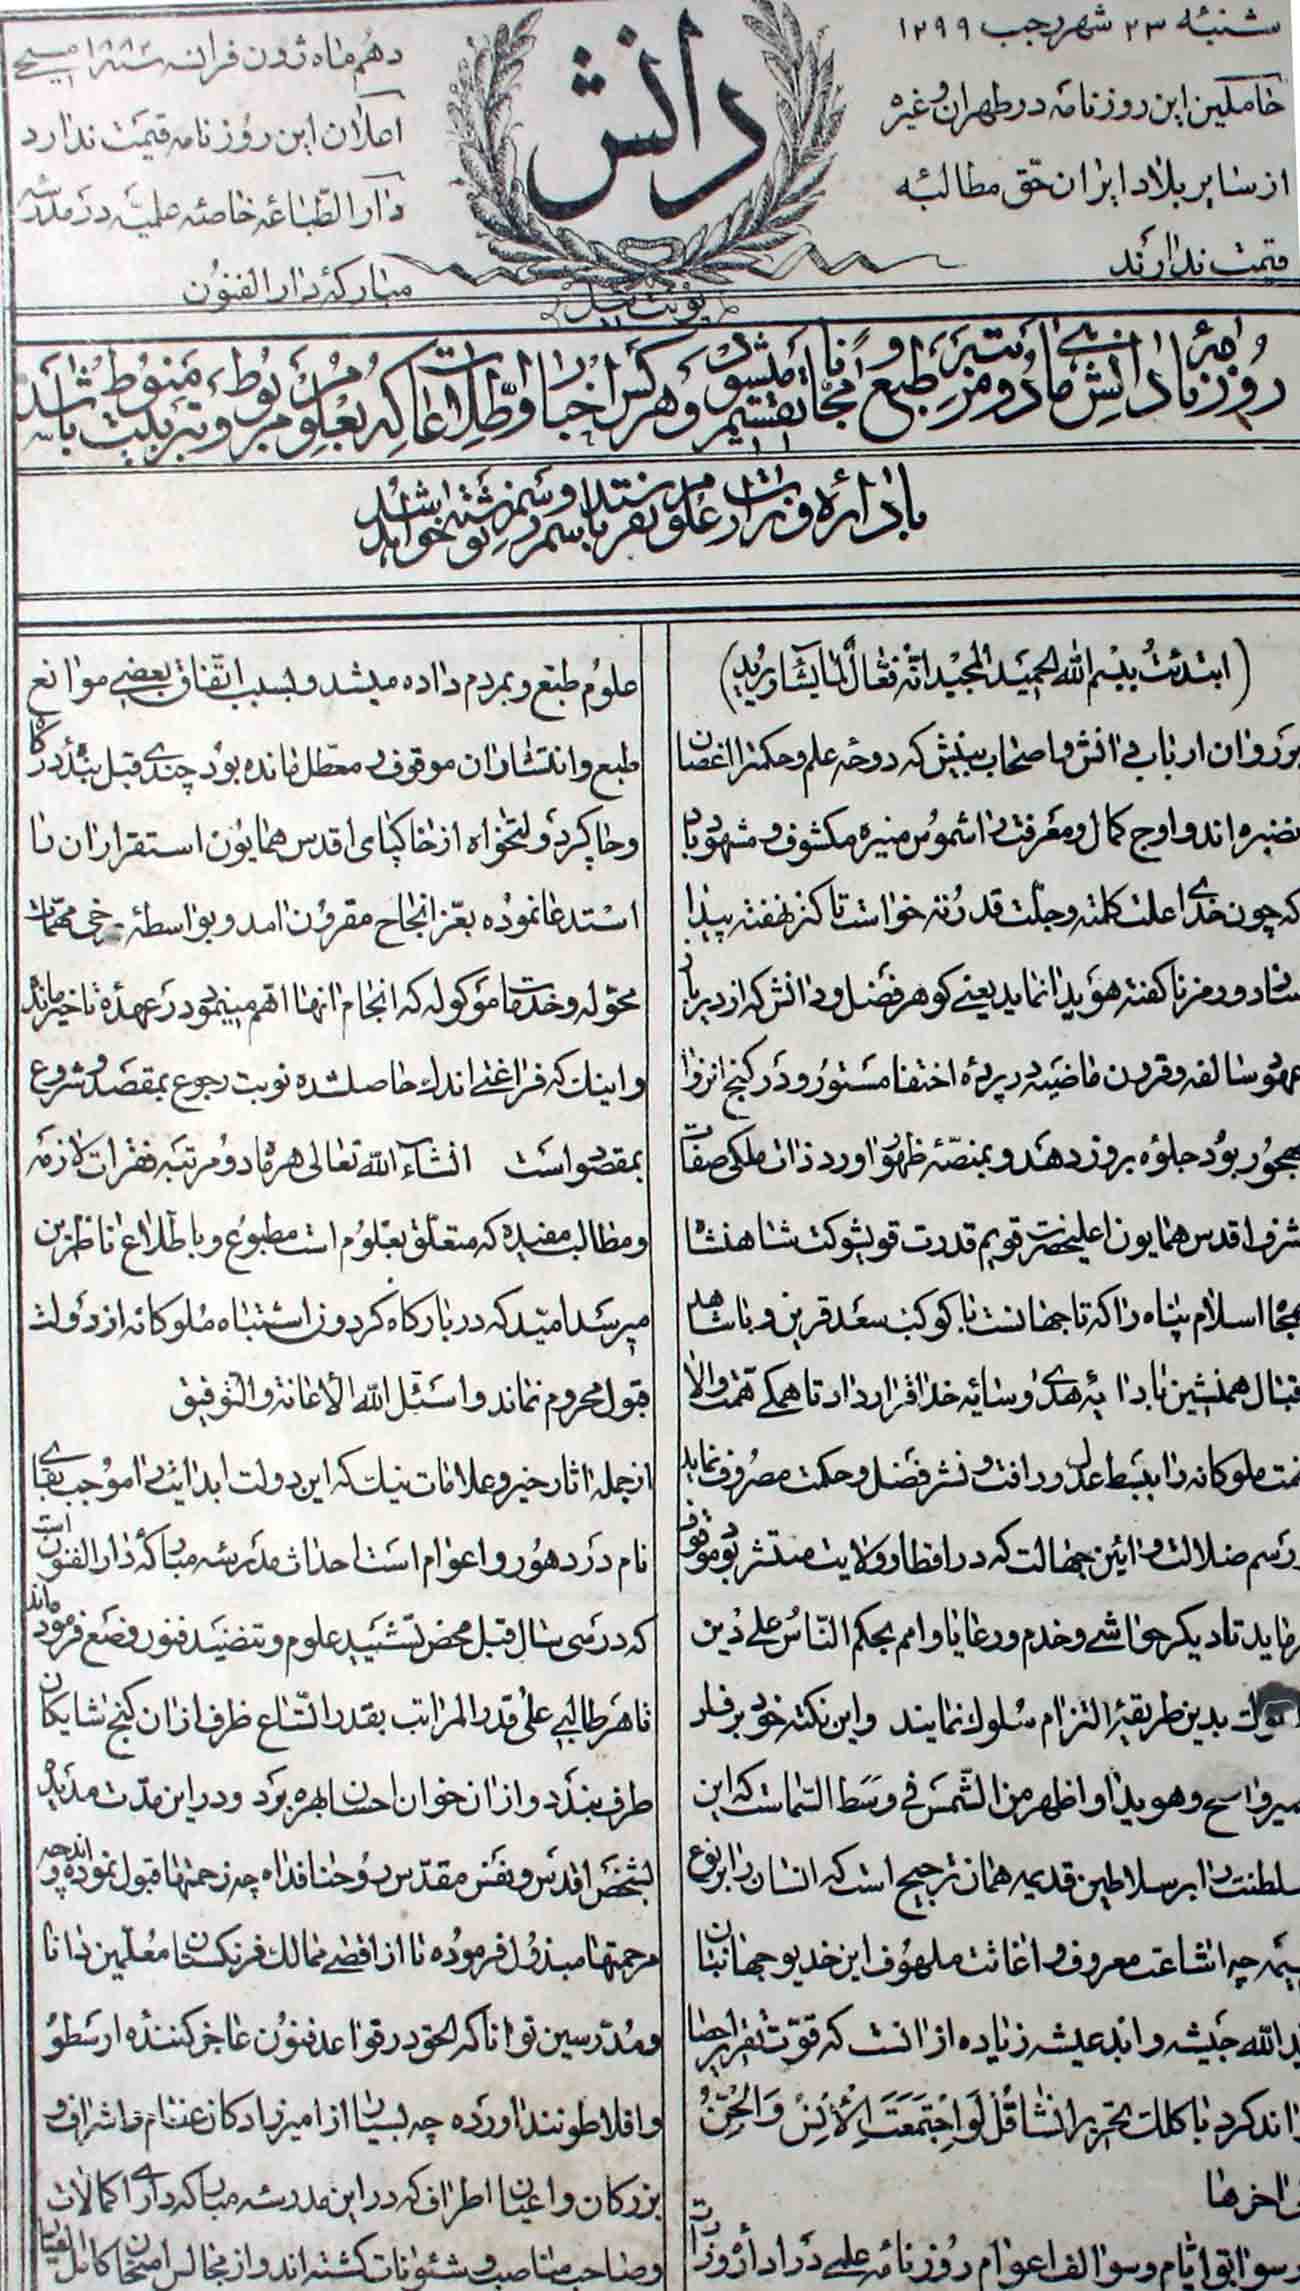 شنبه ۲۳ شهر رجب ۱۲۹۹
حاملین این روزنامه در طهران و غیره
از سایر بلاد ایران حق مطالبهٔ
قیمت ندارند
دانش
نوبت اول
دهم ماه ژون فرانسه ۱۸۸۲ مسیحی
اعلان این روزنامه قیمت ندارد
دار الطباعه خاصهٔ علمیه در مدرسه
مبارکهٔ دار الفنون
روزنامهٔ دانش ماهی دو مرتبه طبع و مجاناً تقسیم میشود و هر کس اخبار و اطلاعاتی که بعلوم مربوط و بتربیت منوط باشد
باداره وزارت علوم بفرستد باسم و رسمش نوشته خواهد شد
(ابتدئت ببسم الله الحمید المجید انه فعال لما یشاء و یرید)
بر روان ارباب دانش و اصحاب بینش که دوحه علم و حکمترا اغصان
نضیره اند و اوج کمال و معرفت را شموس منیره مکشوف و مشهود باد
که چون خدای اعلت کلمته و جلت قدرته خواست تا کنز نهفته پیدا
سازد و رمز ناکفته هویدا نماید یعنی کوهر فضل و دانش که از دیر باز
عهود سالفه و قرون ماضیه در پردهٔ اختفا مستور و در کنج انزوا
مهجور بود جلوه بروز دهد و بمنصهٔ ظهور اورد ذات ملکی صفات
اشرف اقدس همایون اعلیحضرت قویم قدرت قویشوکت شاهنشاه
جمجاه اسلام پناه را که تا جهانست با کوکب سعد قرین و با شاهد
اقبال همنشین باد ایهٔ هدی و سایه خدا قرار داد تا همکی همت والا
نهمت ملوکانه را ببسط عدل و رافت و نشر فضل و حکمت مصروف نماید
و رسم ضلالت و ائین جهالت که در اقطار ولایت منتشر بود موقوف
فرماید تا دیکر حواشی و خدم و رعایا و امم بحکم الناس علی دین
ملوکهم بدین طریقهٔ التزام سلوک نمایند و این نکته خود بر
ضمیر واضح و هویدا و اظهر من الشمس فی وسط السماست که این
سلطنت را بر سلاطین قدیمه همان ترجیح است که انسان را بر نوع
بهیمه چه اشاعت معروف و اغاثت ملهوف این خدیو جهانبان
اید الله جیشه و ابد عیشه زیاده از انست که قوت تقریر احصا
تواند کرد یا کلک تحریر انشا قل لو اجتمعت الانس و الجن
الی اخرها
در سوابق ایام و سوالف اعوام روزنامه علمی در ادارهٔ وزارت
علوم طبع و بمردم داده میشد و بسبب اتفاق بعضی موانع
طبع و انتشار ان موقوف و معطل مانده بود چندی قبل بنده درکاه
و چاکر دولتخواه از خاکپای اقدس همایون استقرار ان را
استدعا نموده بعز انجاح مقرون امد و بواسطهٔ برخی مهمات
محوله و خدمات موکوله که انجام انها اهم مینمود در عهدهٔ تاخیر ماند
و اینک که فراغتی اندک حاصل شده نوبت رجوع بمقصد و شروع
بمقصود است انشاء الله تعالی هر ماه دو مرتبه فقرات لازمه
و مطالب مفیده که متعلق بعلوم است مطبوع و باطلاع ناظرین
میرسد امید که در بارکاه کردون اشتباه ملوکانه از دولت
قبول محروم نماند و اسئل الله الاعانة و التوفیق
از جمله اثار خیر و علامات نیک که این دولت ابد ایت را موجب بقای
نام در دهور و اعوام است احداث مدرسه مبارکهٔ دار الفنون است
که در سی سال قبل محض تشیید علوم و تنضید فنون وضع فرموده اند
تا هر طالبی علی قدر المراتب بقدر اتساع ظرف از ان کنج شایکان
طرف بندد و از ان خوان احسان بهره برد و در این مدت مدید
بشخص اقدس و نفس مقدس روحنا فداه چه زحمتها قبول نموده و چه اندازه
مرحمتها مبذول فرموده تا از اقصی ممالک فرنکستان معلمین دانا
و مدرسین توانا که الحق در قواعد فنون عاجز کننده ارسطو
و افلاطونند اورده چه بسیار از امیرزادکان عظام و اشراف و
بزرکان و اعیان اطراف که در این مدرسه مبارکه دارای کمالات
و صاحب مناصب و شئونات کشته اند و از مجالس امتحان کامل